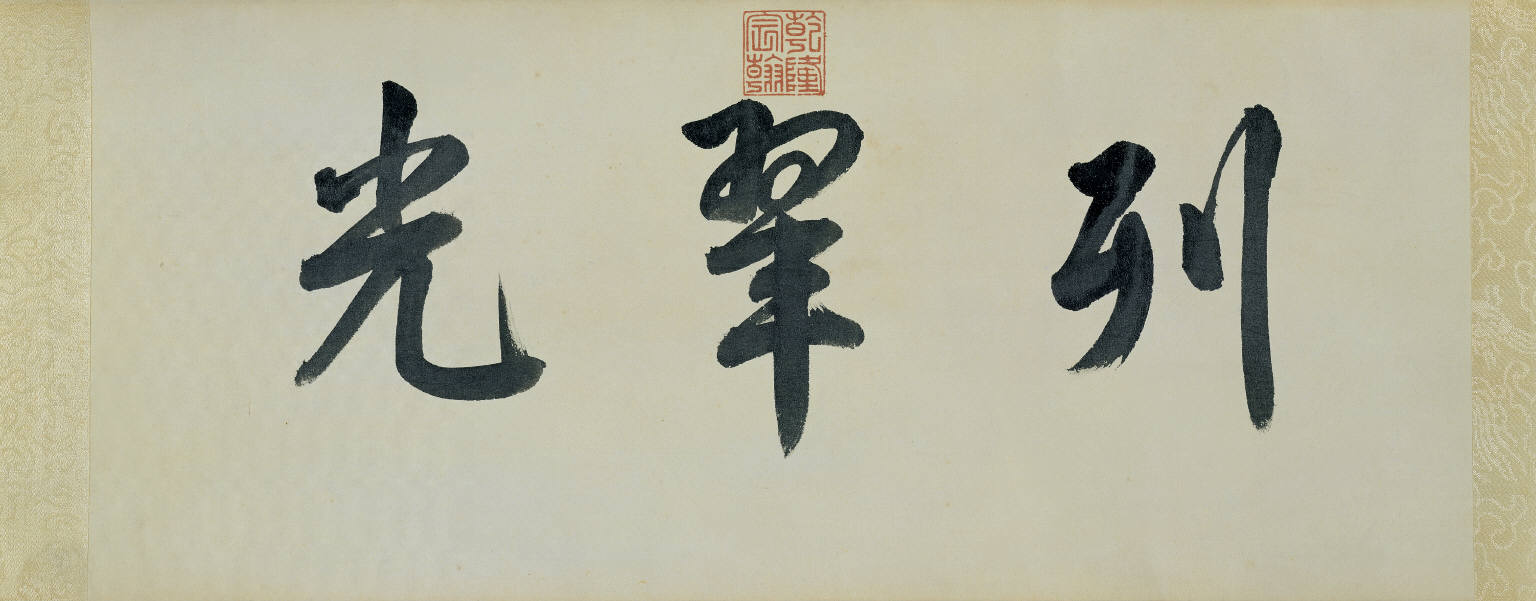 乾隆宸翰
列翠光